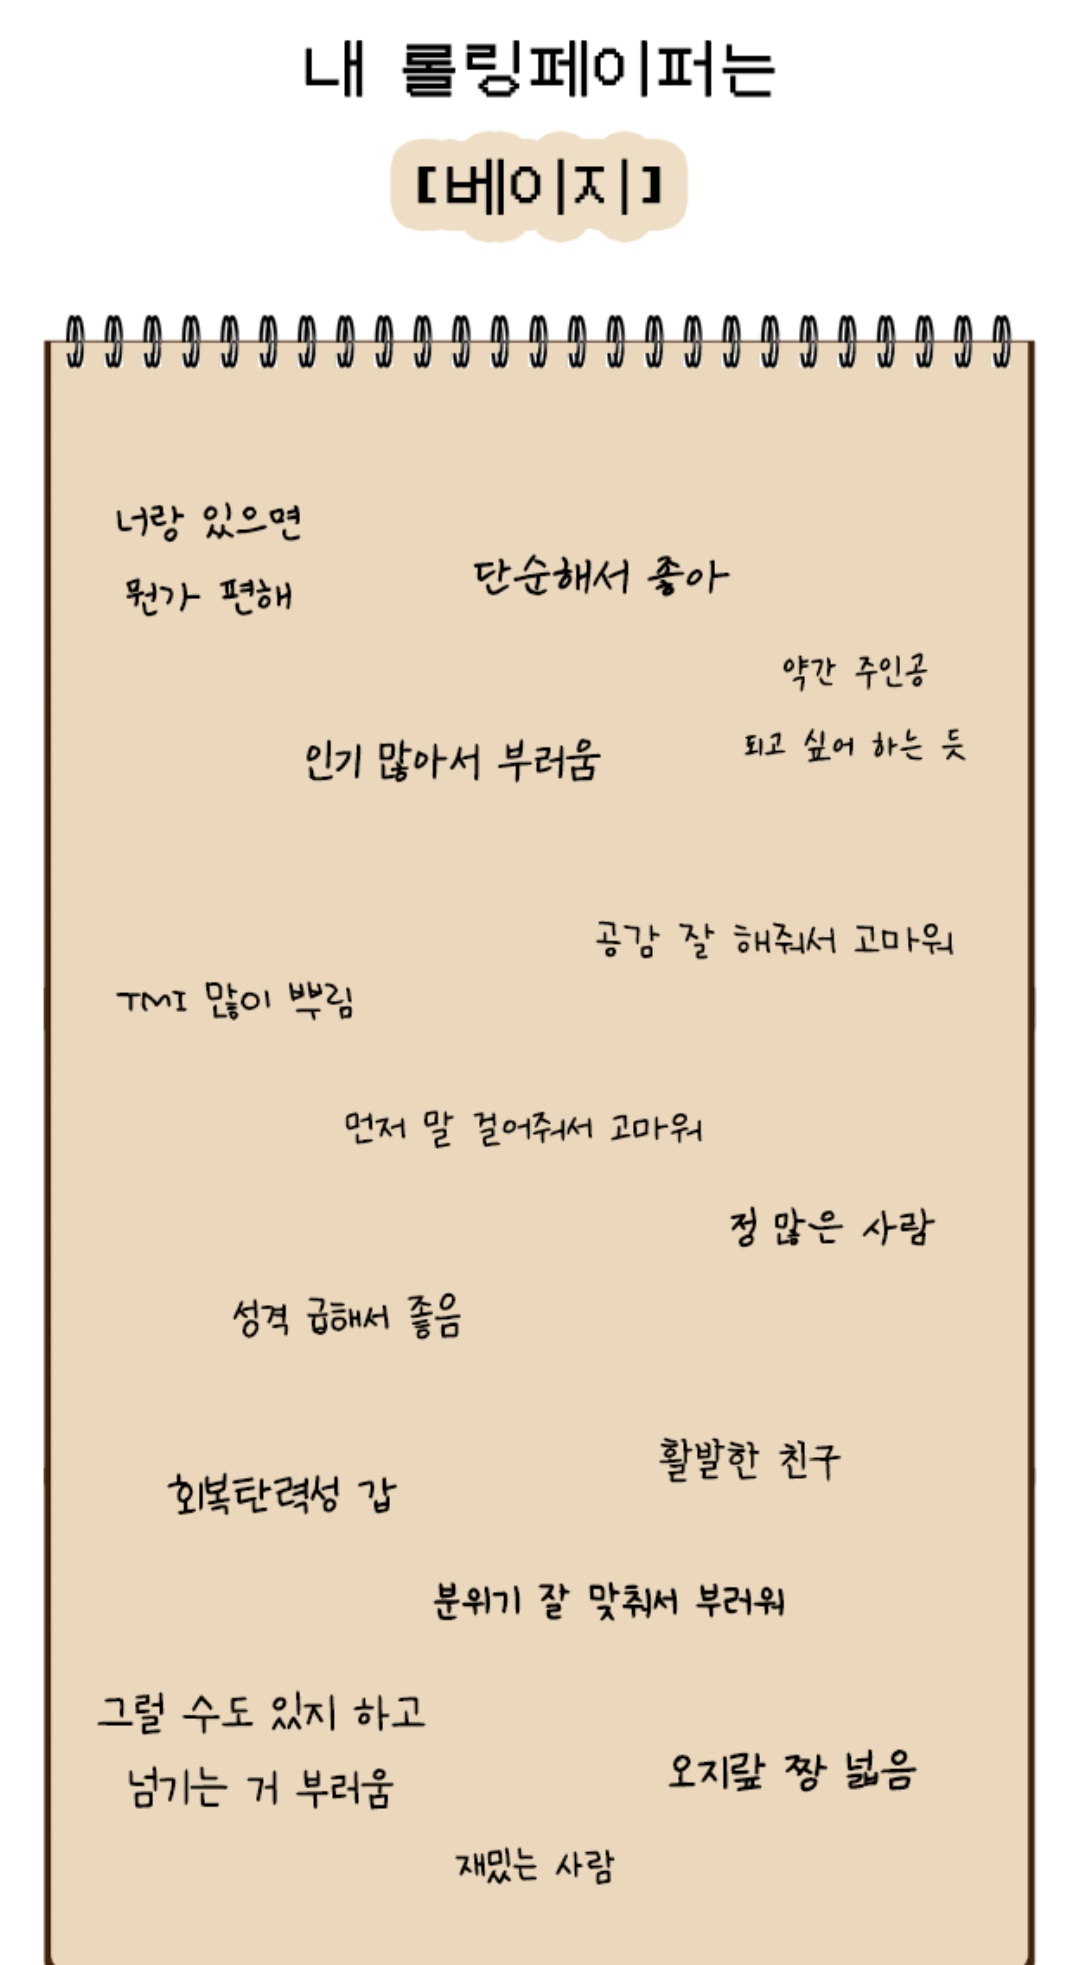 내 롤링페이퍼는
[베이지]
너랑 있으면
뭔가 편해
단순해서 좋아
약간 주인공
되고 싶어 하는 듯
인기 많아서 부러움
공감 잘 해줘서 고마워
TMI 많이 뿌림
먼저 말 걸어줘서 고마워
정 많은 사람
성격 급해서 좋음
활발한 친구
회복탄력성 갑
분위기 잘 맞춰서 부러워
그럴 수도 있지 하고
넘기는 거 부러움
오지랖 짱 넓음
재밌는 사람